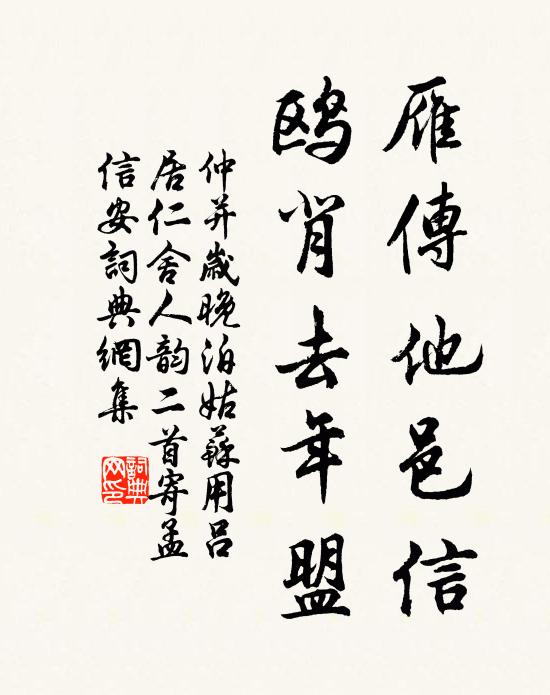 雁傳他邑信
鷗背去年盟
仲并歲晚泊姑蘇用呂
居仁舍人韵二首寄孟
信安詞典網集
詞典
网印